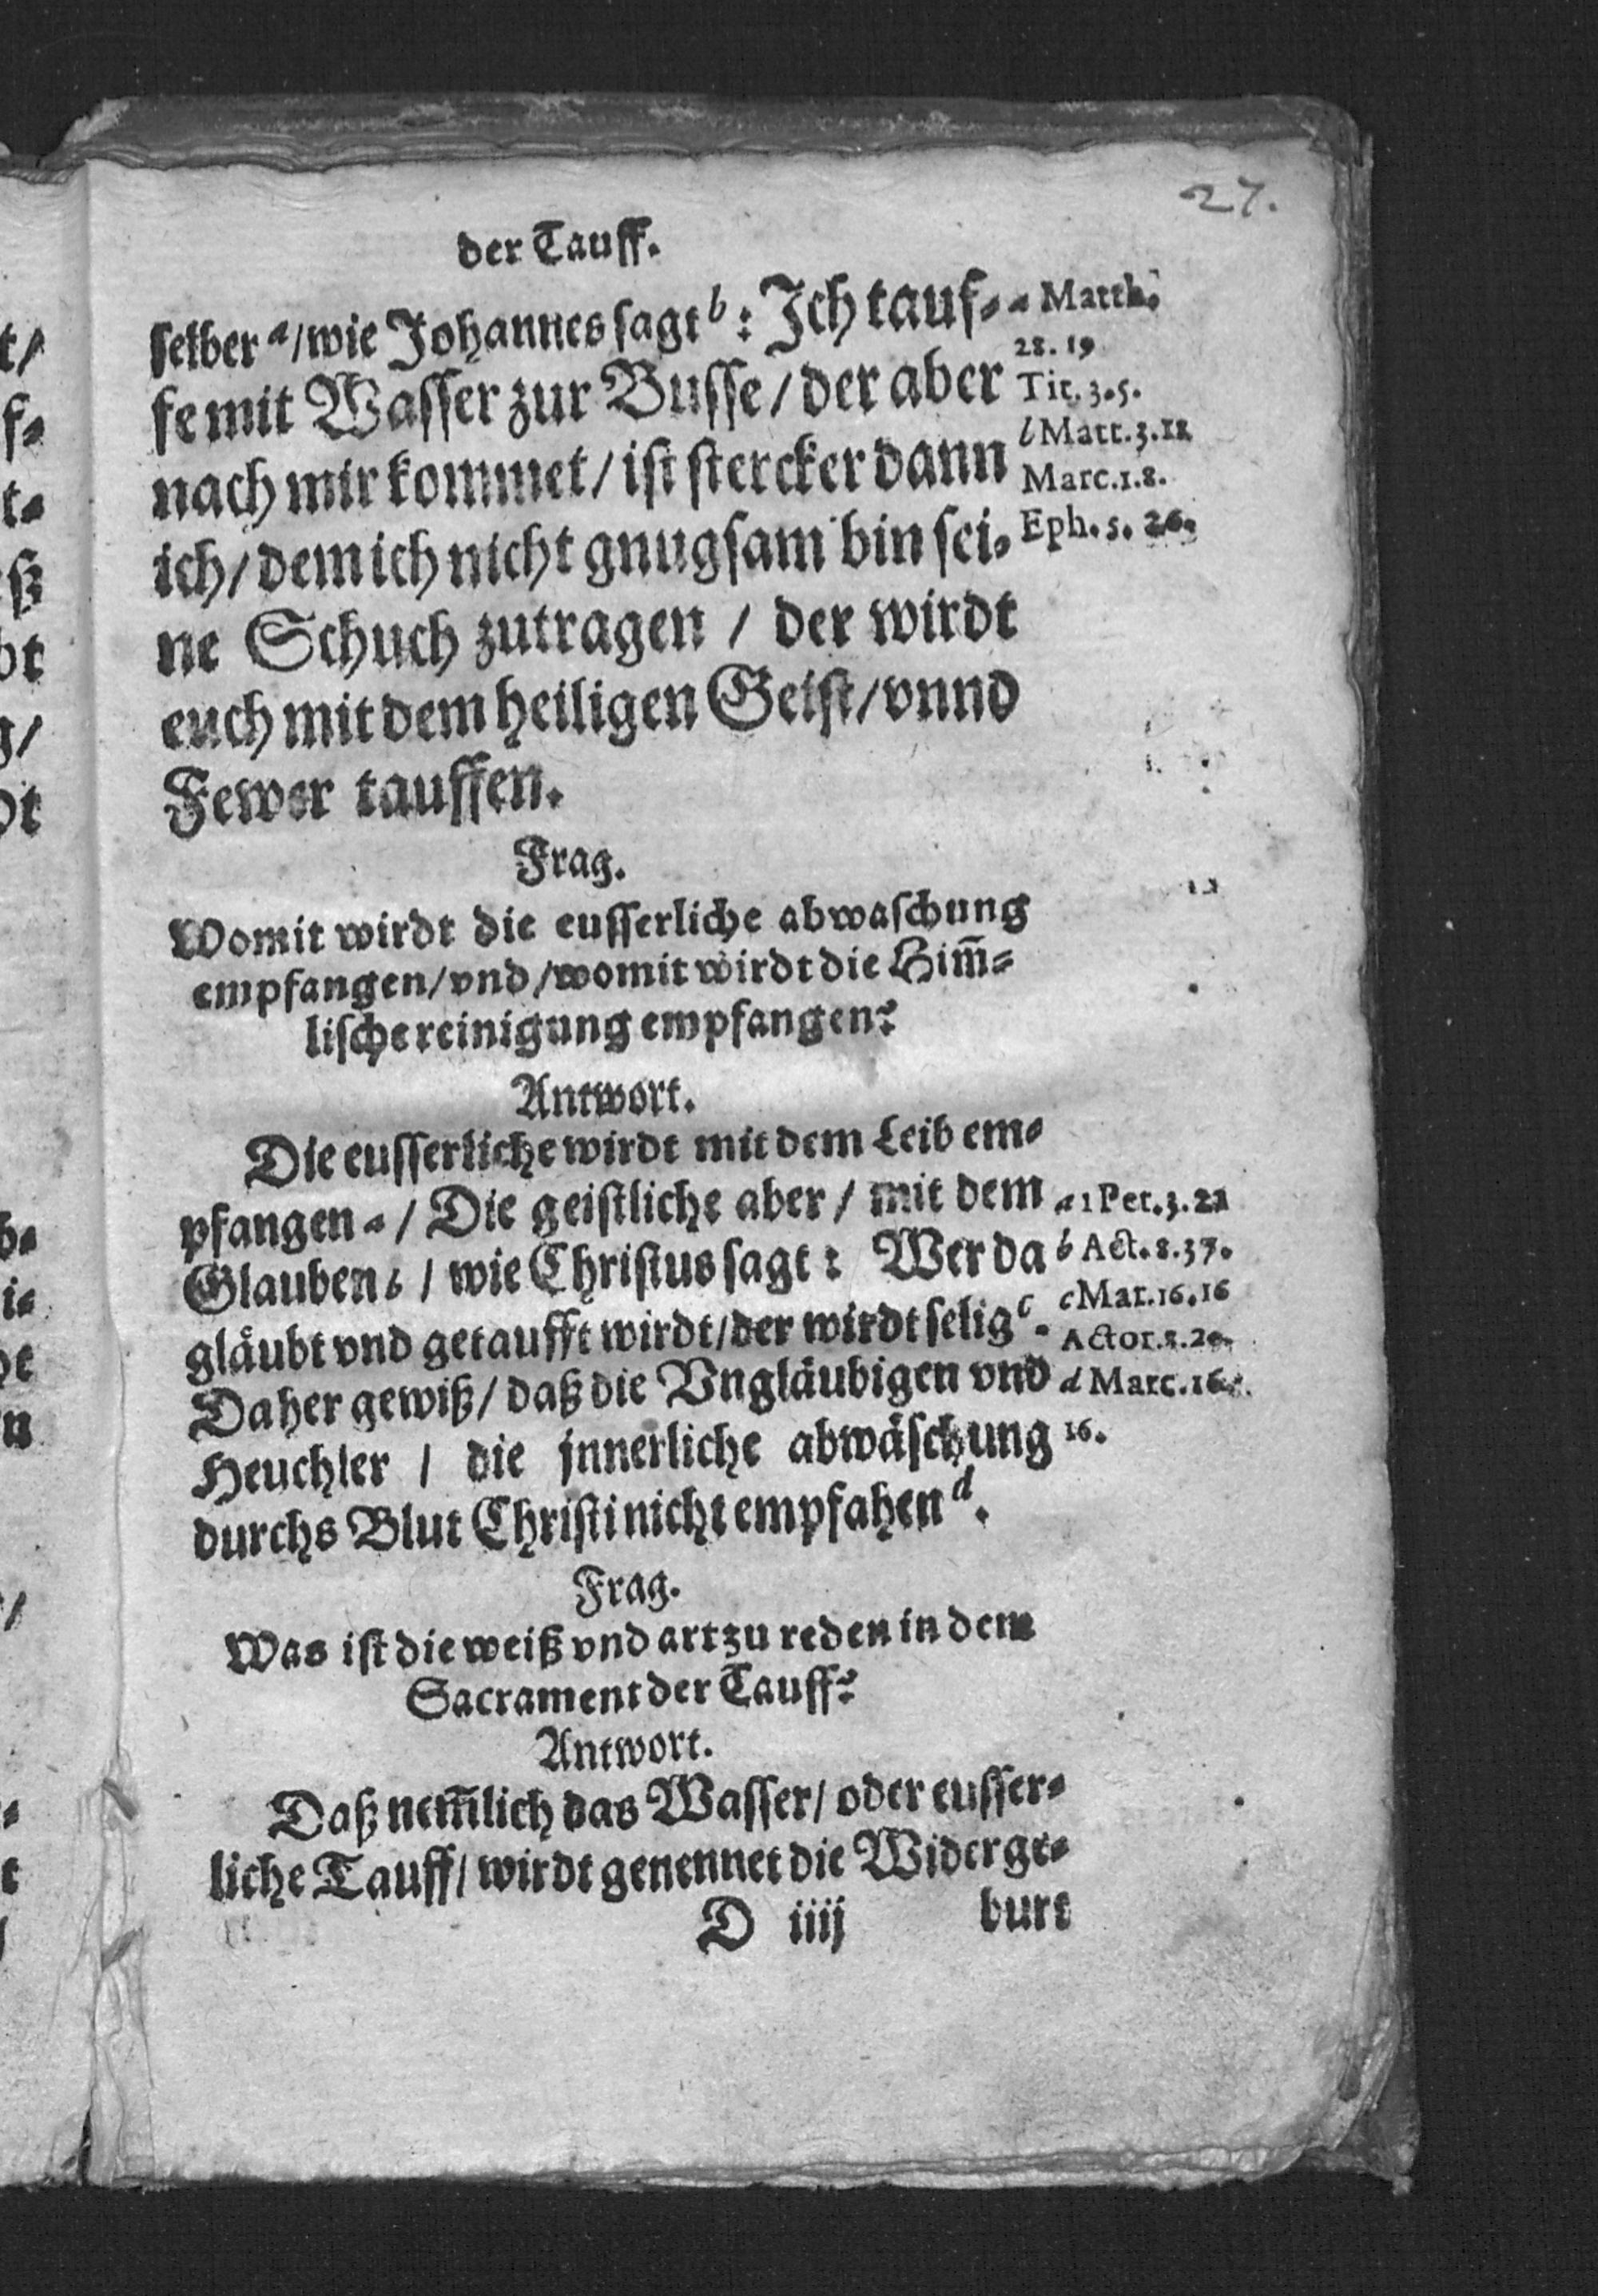 27.
der Tauff.
selber a/wie Johannes sagt b: Ich tauf-
fe mit Wasser zur Busse/der aber
nach mir kommet/ist stercker dann
ich/dem ich nicht gnugsam bin sei-
ne Schuch zutragen / der wirdt
euch mit dem heiligen Geist/vnnd
Fewer tauffen.
a Matth.
28. 19
Tit. 3.5.
b Matt.3.11
Marc.1.8.
Eph. 5. 26.
Frag.
Womit wirdt die eusserliche abwaschung
empfangen/vnd/womit wirdt die Him̃-
lische reinigung empfangen?
Antwort.
Die eusserliche wirdt mit dem Leib em-
pfangen a/ Die geistliche aber / mit dem
Glauben b / wie Christus sagt: Wer da
gläubt vnd getaufft wirdt/der wirdt selig c.
Daher gewiß/daß die Vngläubigen vnd
Heuchler / die jnnerliche abwäschung
durchs Blut Christi nicht empfahen d.
a 1 Pet.3.21
b Act.8.37.
c Mar.16.16
Actor.8.20.
d Marc.16.
16.
Frag.
Was ist die weiß vnd art zu reden in dem
Sacrament der Tauff?
Antwort.
Daß nem̃lich das Wasser/ oder eusser-
liche Tauff/ wirdt genennet die Widerge-
D iiij burt